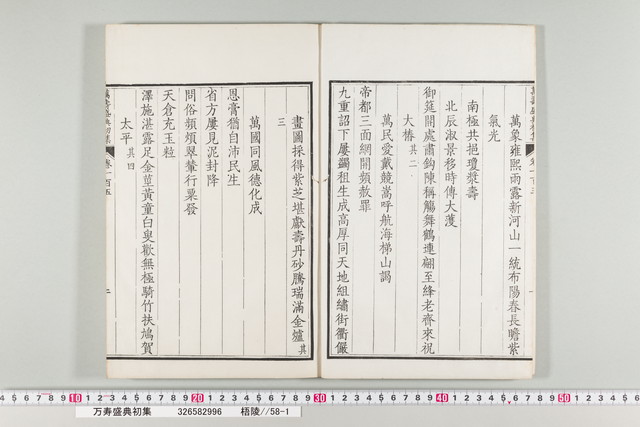 萬象雍熙雨露新河山一統布陽春長瞻紫
氣光
南極共挹瓊漿壽
北辰淑景移時傳大濩
御筵開處肅鈎陳稱觴舞鶴連翩至絳老齊來祝
大椿其二
萬民愛戴競嵩呼航海梯山謁
帝都三面網開頻赦罪
九重詔下屢蠲租生成高厚同天地組繡街衢儼
畫圖採得紫芝堪獻壽丹砂騰瑞滿金爐其
三
萬國同風德化成
恩膏猶自沛民生
省方屢見泥封降
問俗頻煩翠輦行粟發
天倉充玉粒
澤施湛露足金莖黃童白叟歡無極騎竹扶鳩賀
太平其四
卷一百五
二
10 20 30 40 50
万寿盛典初集 326582996 梧陵//58-1